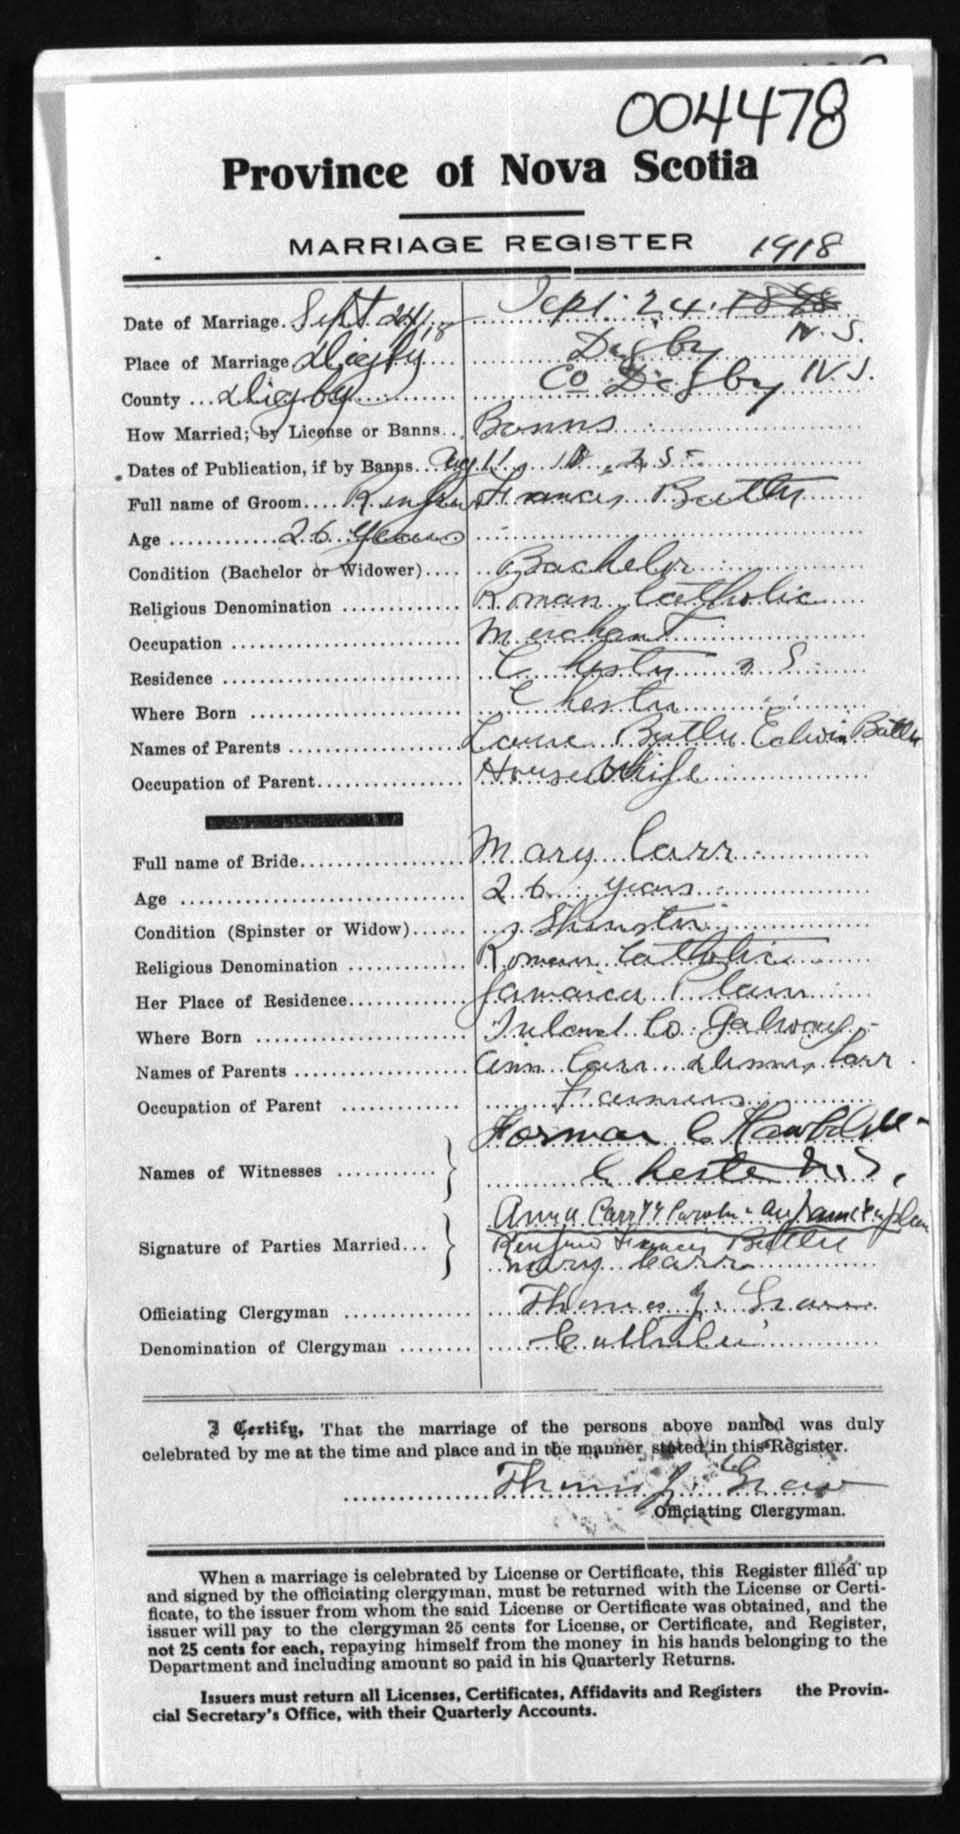 004478
Province of Nova Scotia
MARRIAGE REGISTER 1918
Date of Marriage. Sept 24/18 Sept. 24.
Place of Marriage Digby Digby N.S.
County ... Digby Co Digby N.S.
How Married; by License or Banns... Banns
Dates of Publication, if by Banns... 11 18 25
Full name of Groom.... Francis Butler
Age ............ 26 Years
Condition (Bachelor or Widower).... Bachelor
Religious Denomination ............ Roman Catholic
Occupation ............ Merchant
Residence ............ Chester N S
Where Born ............ Chester
Names of Parents ............ Butler Edwin Butler
Occupation of Parent............ House Wife
Full name of Bride............ Mary Carr
Age ............ 26 years
Condition (Spinster or Widow)...... Spinster
Religious Denomination ............ Roman Catholic
Her Place of Residence............ Jamaica Plain
Where Born ............ Ireland Co Galway
Names of Parents ............ Ann Carr Dennis Carr
Occupation of Parent ............ Farmers
Names of Witnesses ............ C
Chester N.S.
Anna Carr
Signature of Parties Married... Francis Butler
Mary Carr
Officiating Clergyman ............ Thomas J.
Denomination of Clergyman ........ Catholic
I Certify, That the marriage of the persons above named was duly
celebrated by me at the time and place and in the manner stated in this Register.
Thomas J.
Officiating Clergyman.
When a marriage is celebrated by License or Certificate, this Register filled up
and signed by the officiating clergyman, must be returned with the License or Certi-
ficate, to the issuer from whom the said License or Certificate was obtained, and the
issuer will pay to the clergyman 25 cents for License, or Certificate, and Register,
not 25 cents for each, repaying himself from the money in his hands belonging to the
Department and including amount so paid in his Quarterly Returns.
Issuers must return all Licenses, Certificates, Affidavits and Registers the Provin-
cial Secretary's Office, with their Quarterly Accounts.